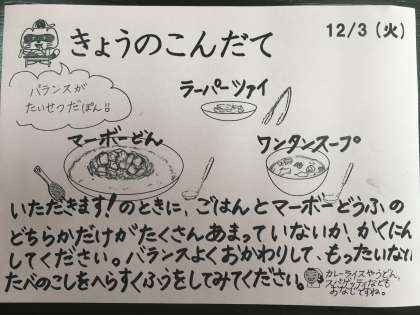 きょうのこんだて
12/3(火)
バランスが
たいせつだぽん!!
ラーパーツァイ
マーボーどん
ワンタンスープ
いただきます!のときに、ごはんとマーボーどうふの
どちらかだけがたくさんあまっていないか、かくにん
してください。バランスよくおかわりして、もったいない
たべのこしをへらすくふうをしてみてください。
カレーライスやうどん、
スパゲッティなども
おなじですね。